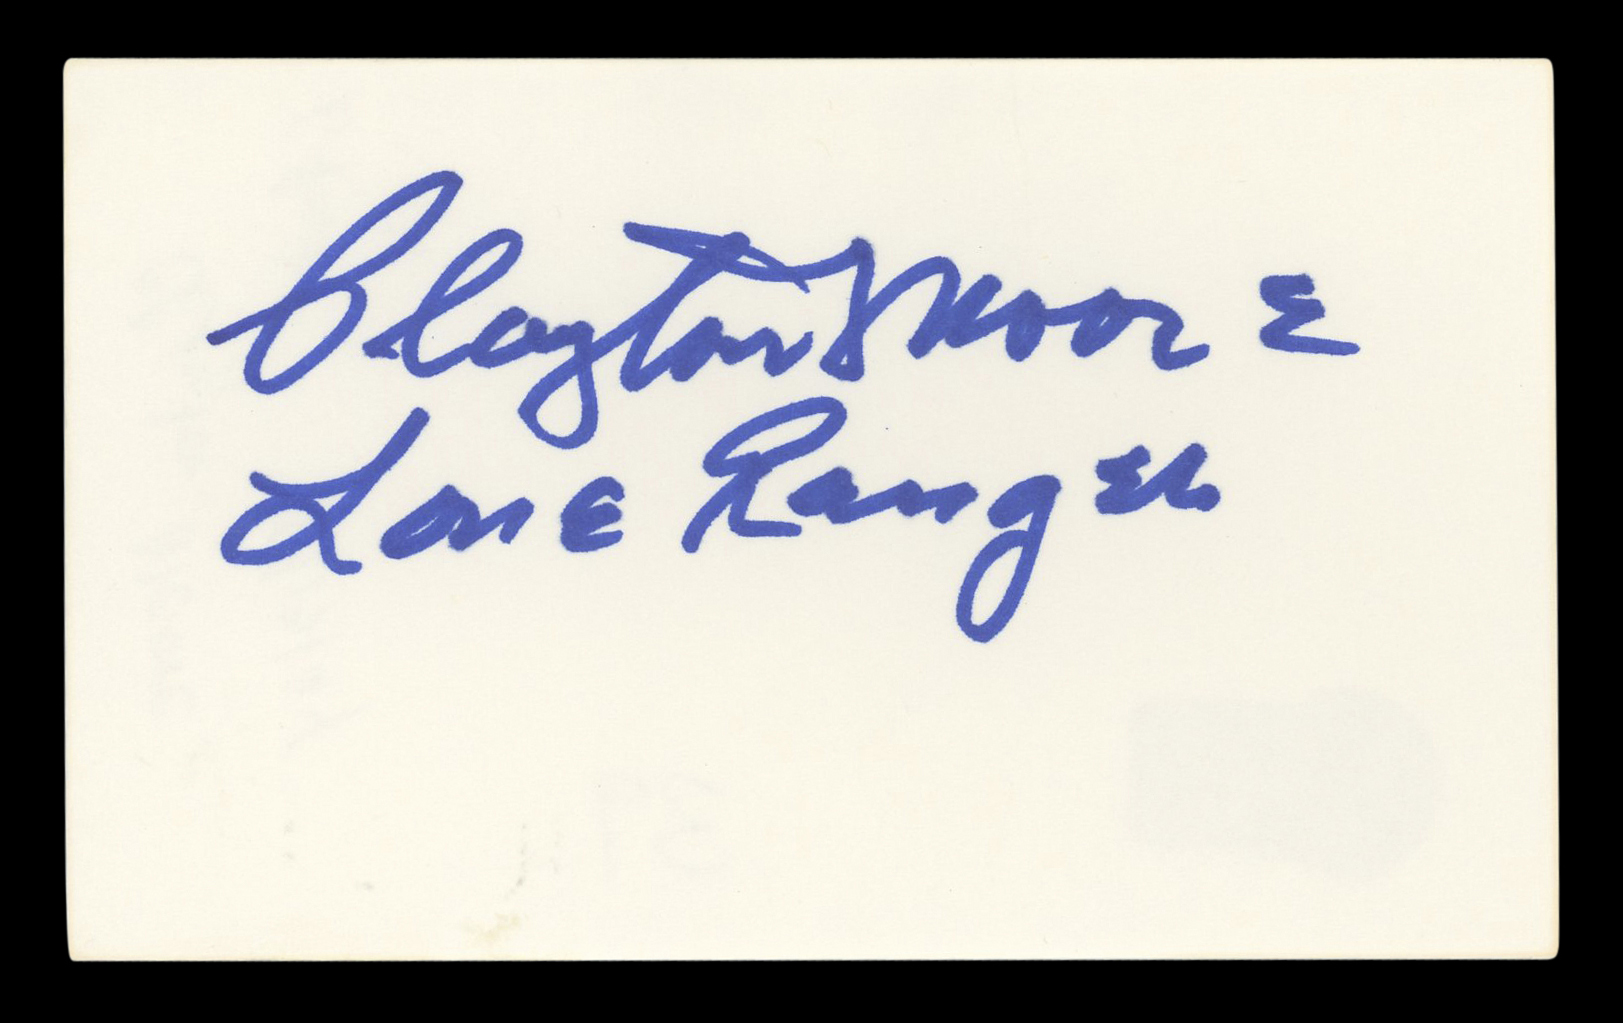 Clayton Moore
Lone Ranger